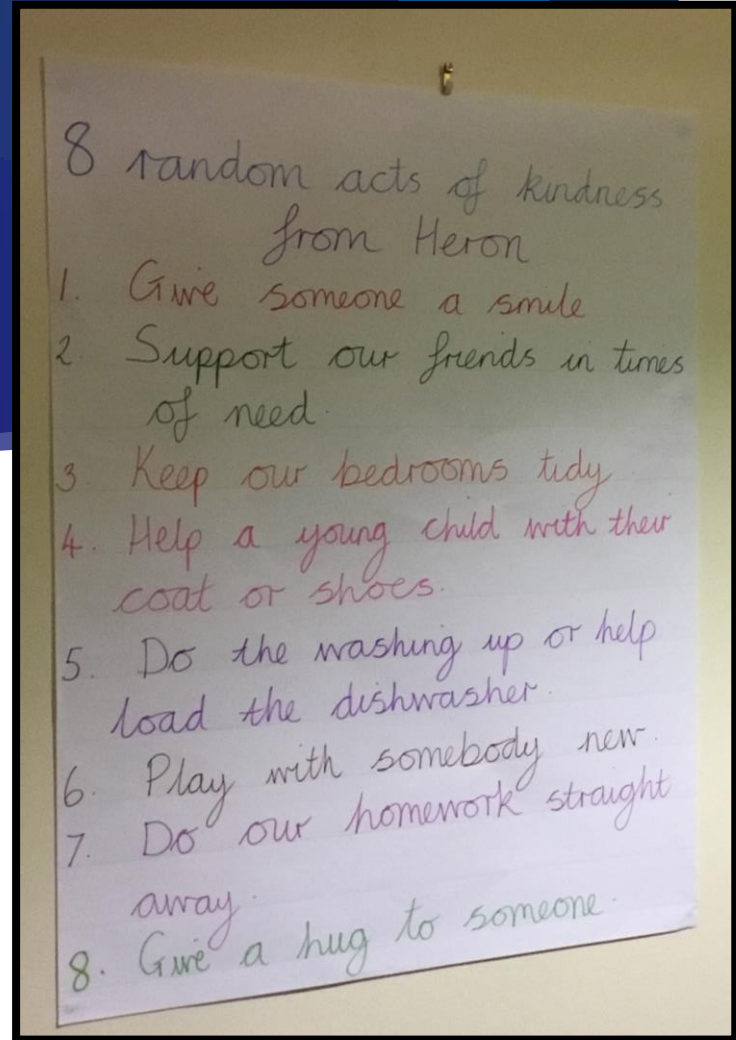 8 random acts of kindness
from Heron
1. Give someone a smile
2. Support our friends in times
of need.
3. Keep our bedrooms tidy
4. Help a young child with their
coat or shoes.
5. Do the washing up or help
load the dishwasher.
6. Play with somebody new.
7. Do our homework straight
away.
8. Give a hug to someone.